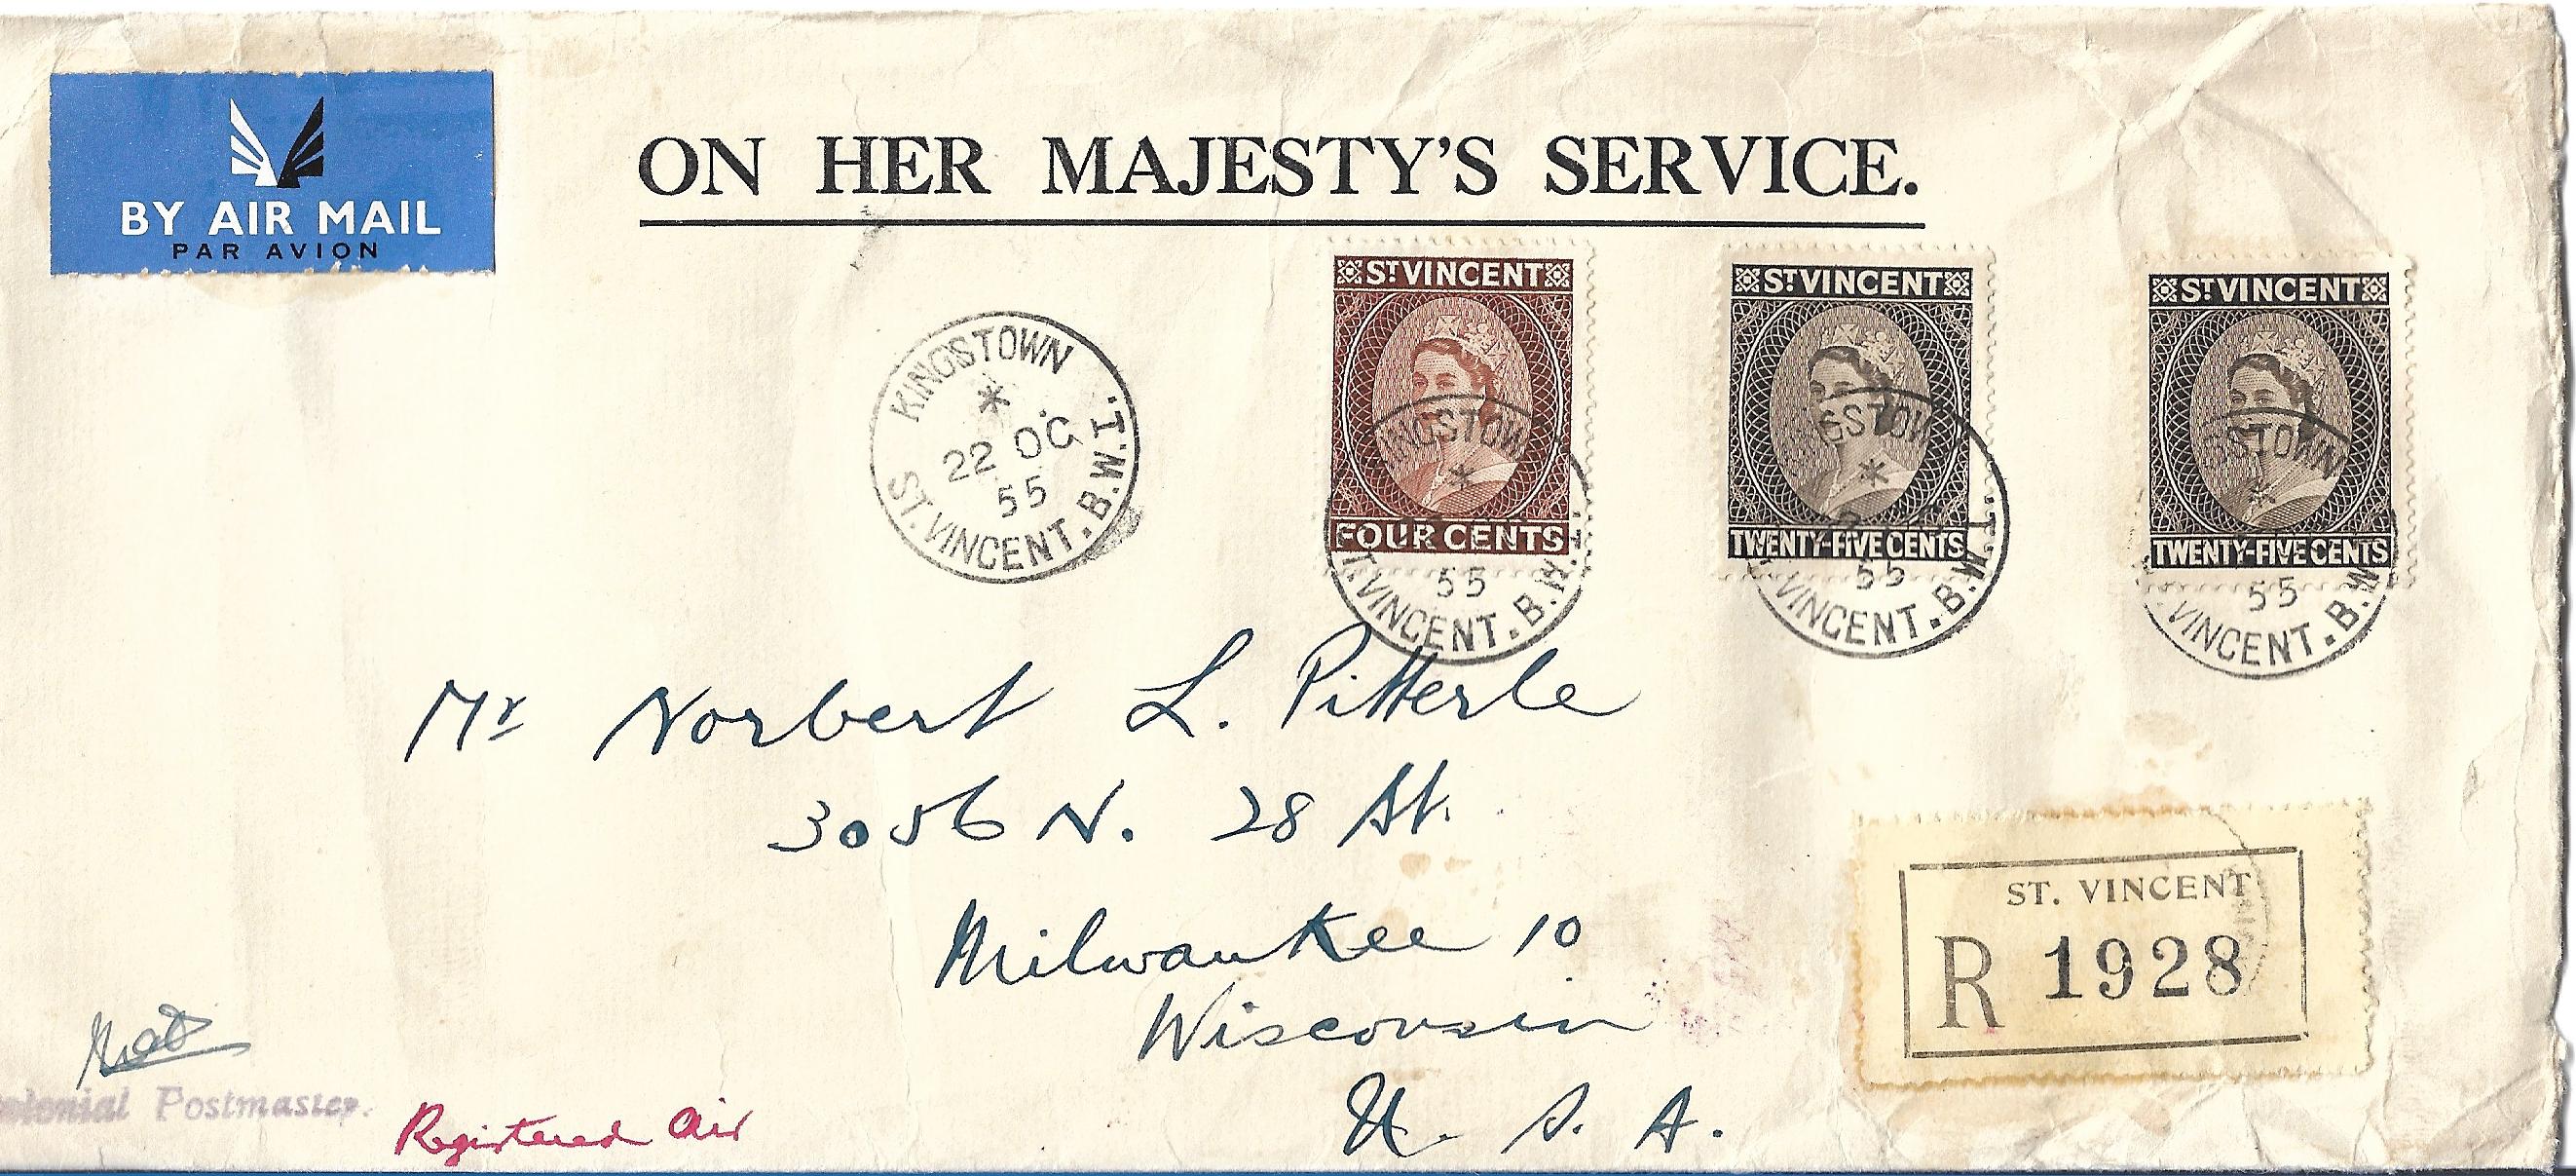 BY AIR MAIL
PAR AVION
ON HER MAJESTY'S SERVICE.
KINGSTOWN
22 OC
55
ST. VINCENT. B.W.I.
ST VINCENT
FOUR CENTS
KINGSTOWN
55
ST. VINCENT. B.W.I.
ST VINCENT
TWENTY-FIVE CENTS
55
VINCENT. B.W.I.
ST VINCENT
TWENTY-FIVE CENTS
55
VINCENT. B.W
Mr Norbert L. Pitterle
3056 N. 28 St.
Milwaukee 10
Wisconsin
U. S. A.
ST. VINCENT
R 1928
Colonial Postmaster.
Registered Air